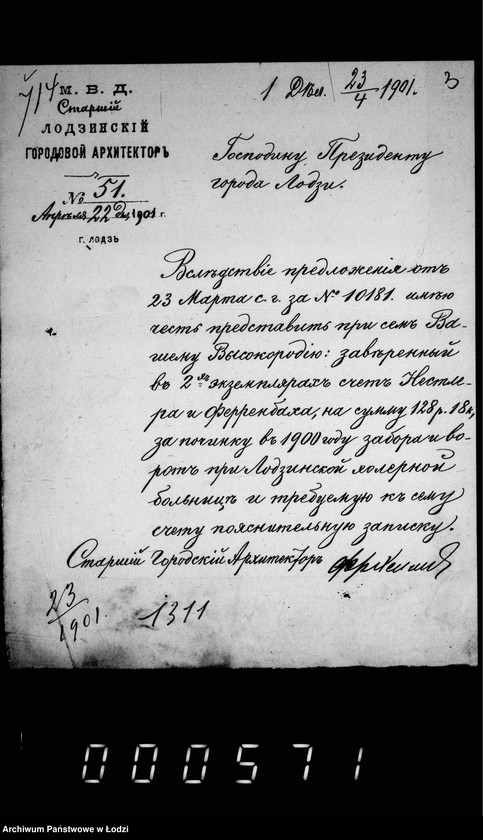 714
М. В. Д.
Старшій
ЛОДЗИНСКІЙ
ГОРОДОВОЙ АРХИТЕКТОРЪ
№ 51.
Апрѣля 22 дня 1901 г.
г. ЛОДЗЬ
1 Дѣл. 23/4 1901.
3
Господину Президенту
города Лодзи.
Вслѣдствіе предложенія отъ
23 Марта с. г. за № 10181. имѣю
честь представить при семъ Ва-
шему Высокородію: завѣренный
въ 2хъ экземплярахъ счетъ Нестле-
ра и Ферренбаха, на сумму 128 р. 18 к,
за починку въ 1900 году забора и во-
ротъ при Лодзинской холерной
больницѣ и требуемую къ сему
счету пояснительную записку.
Старшій Городскій Архитекторъ
23/1901
1311
000571
Archiwum Państwowe w Łodzi